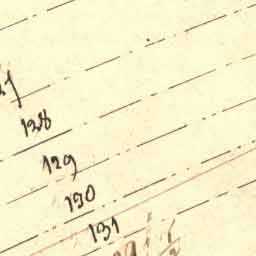 128
129
130
131